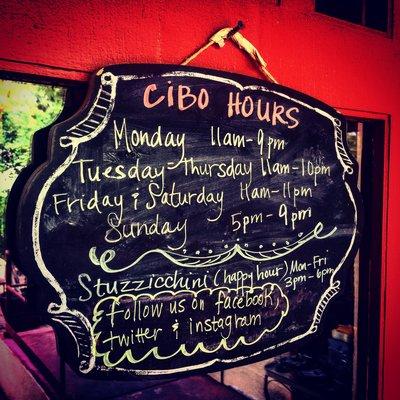 CiBO HOURS
Monday 11am-9pm
Tuesday-Thursday 11am-10pm
Friday & Saturday 11am-11pm
Sunday 5pm-9pm
Stuzzicchini (happy hour) Mon-Fri
3pm-6pm
follow us on facebook
twitter & instagram